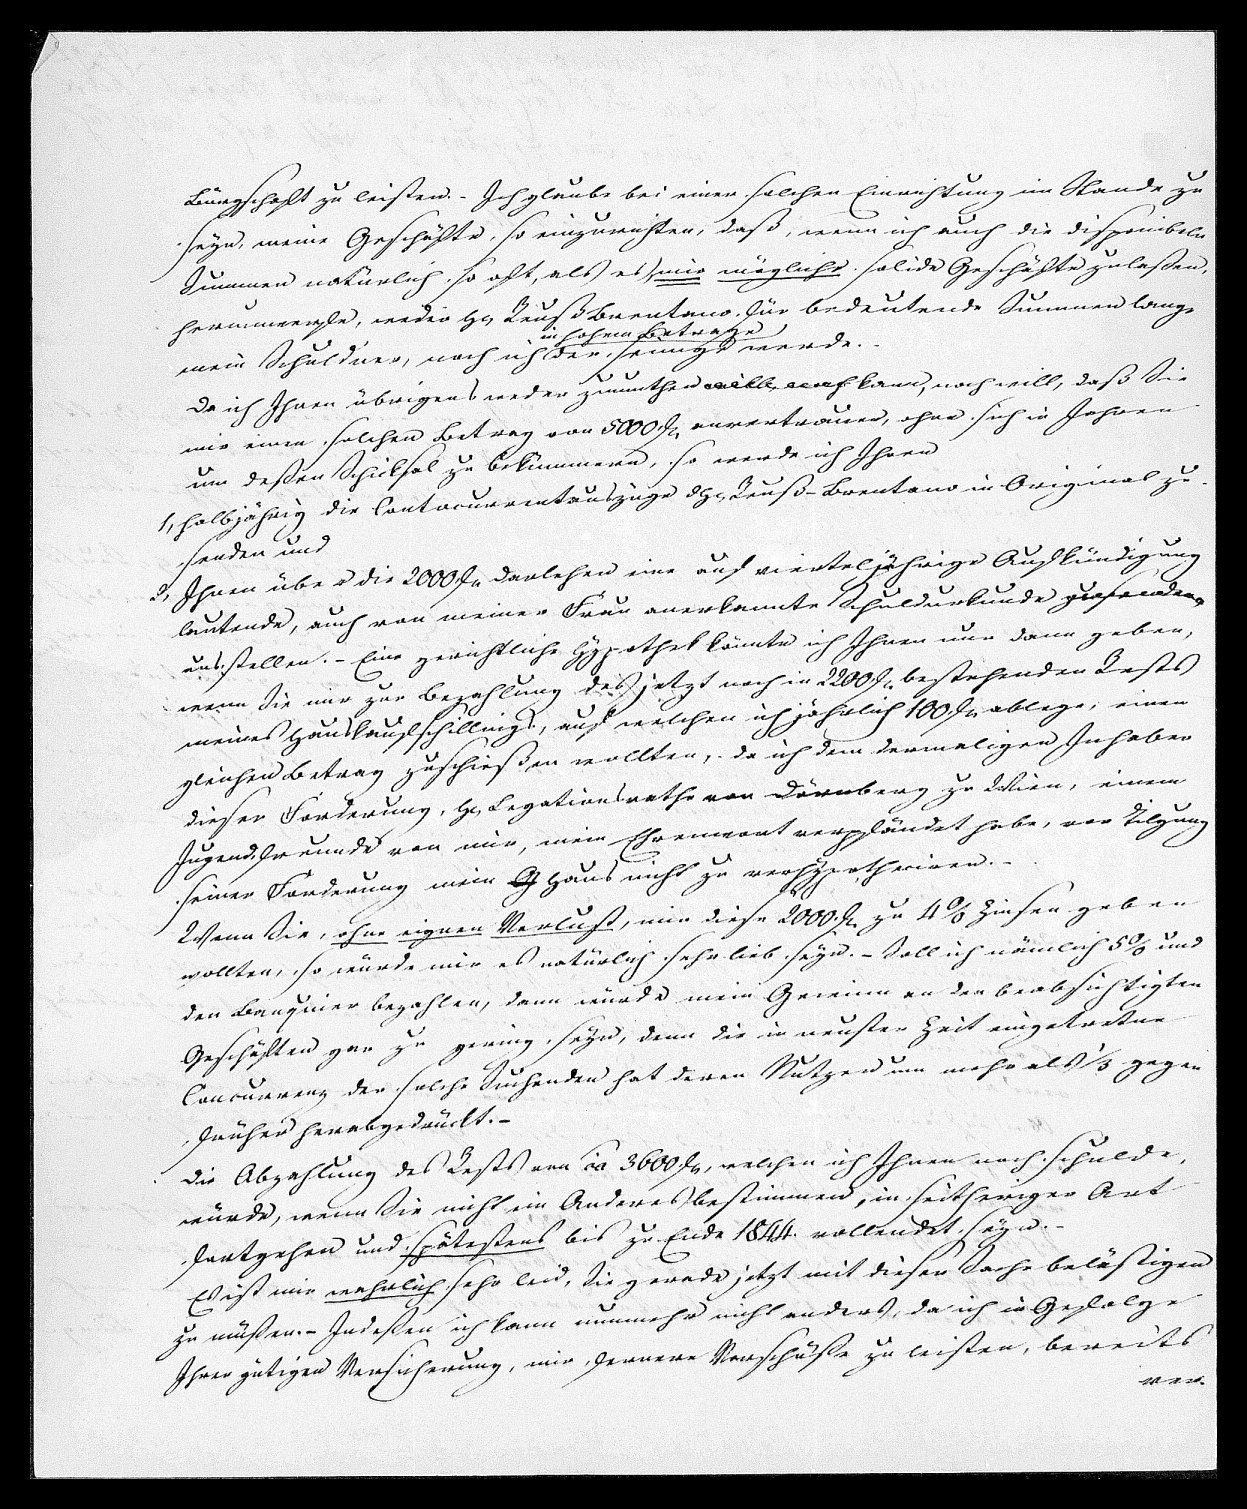 Bürgschaft zu leisten. - Ich glaube bei einer solchen Einrichtung im Stande zu
seyn, meine Geschäfte so einzurichten, daß, wenn ich auch die disponibeln
Summen natürlich so oft, als es mir mögliche solide Geschäfte zulaßen,
herumwerfe, weder H. Reuß Brentano für bedeutende Summen lange
in hohem Betrage
mein Schuldner, noch ich der seinige werde. -
Da ich Ihnen übrigens weder zumuthen kann, noch will, daß Sie
mir einen solchen Betrag von 5000 f. anvertrauen, ohne sich in Jahren
um deßen Schicksal zu bekümmern, so werde ich Ihnen
1, halbjährig die Contocurrentauszüge d. H. Reuß-Brentano in Original zu
senden und
2, Ihnen über die 2000 f. Darlehen eine auf vierteljährige Aufkündigung
lautende, auch von meiner Frau anerkannte Schuldurkunde zusenden
ausstellen. - Eine gerichtliche Hypothek könnte ich Ihnen nur dann geben,
wenn Sie mir zur Bezahlung des jetzt noch in 2200 f. bestehenden Rests
meines Hauskaufschillings, auf welchen ich jährlich 100 f. ablege, einen
gleichen Betrag zuschießen wollten, da ich dem dermaligen Inhaber
dieser Forderung, H. Legationsrathe von Dörnberg zu Wien, einem
Jugendfreunde von mir, mein Ehrenwort verpfändet habe, vor Tilgung
seiner Forderung mein Haus nicht zu verhypotheciren. -
Wenn Sie, ohne eignen Verlust, mir diese 2000 f. zu 4% Zinsen geben
wollten, so würde mir es natürlich sehr lieb seyn. - Soll ich nämlich 5% und
den Banquier bezahlen, dann würde mein Gewinn an den beabsichtigten
Geschäften gar zu gering seyn, denn die in neuster Zeit eingetretne
Concurrenz der solche Suchenden hat deren Nutzen um mehr als 1/3 gegen
früher herabgedrückt. -
Die Abzahlung des Rests von ca 3600 f., welchen ich Ihnen noch schulde,
würde, wenn Sie nicht ein Anderes bestimmen, in seitheriger Art
fortgehen und spätestens bis zu Ende 1844 vollendet seyn. -
Es ist mir wahrlich sehr leid, Sie gerade jetzt mit dieser Sache belästigen
zu müßen. - Indeßen ich kann nunmehr nicht anders, da ich in Gefolge
Ihrer gütigen Versicherung, mir fernere Vorschüße zu leisten, bereits
ver-